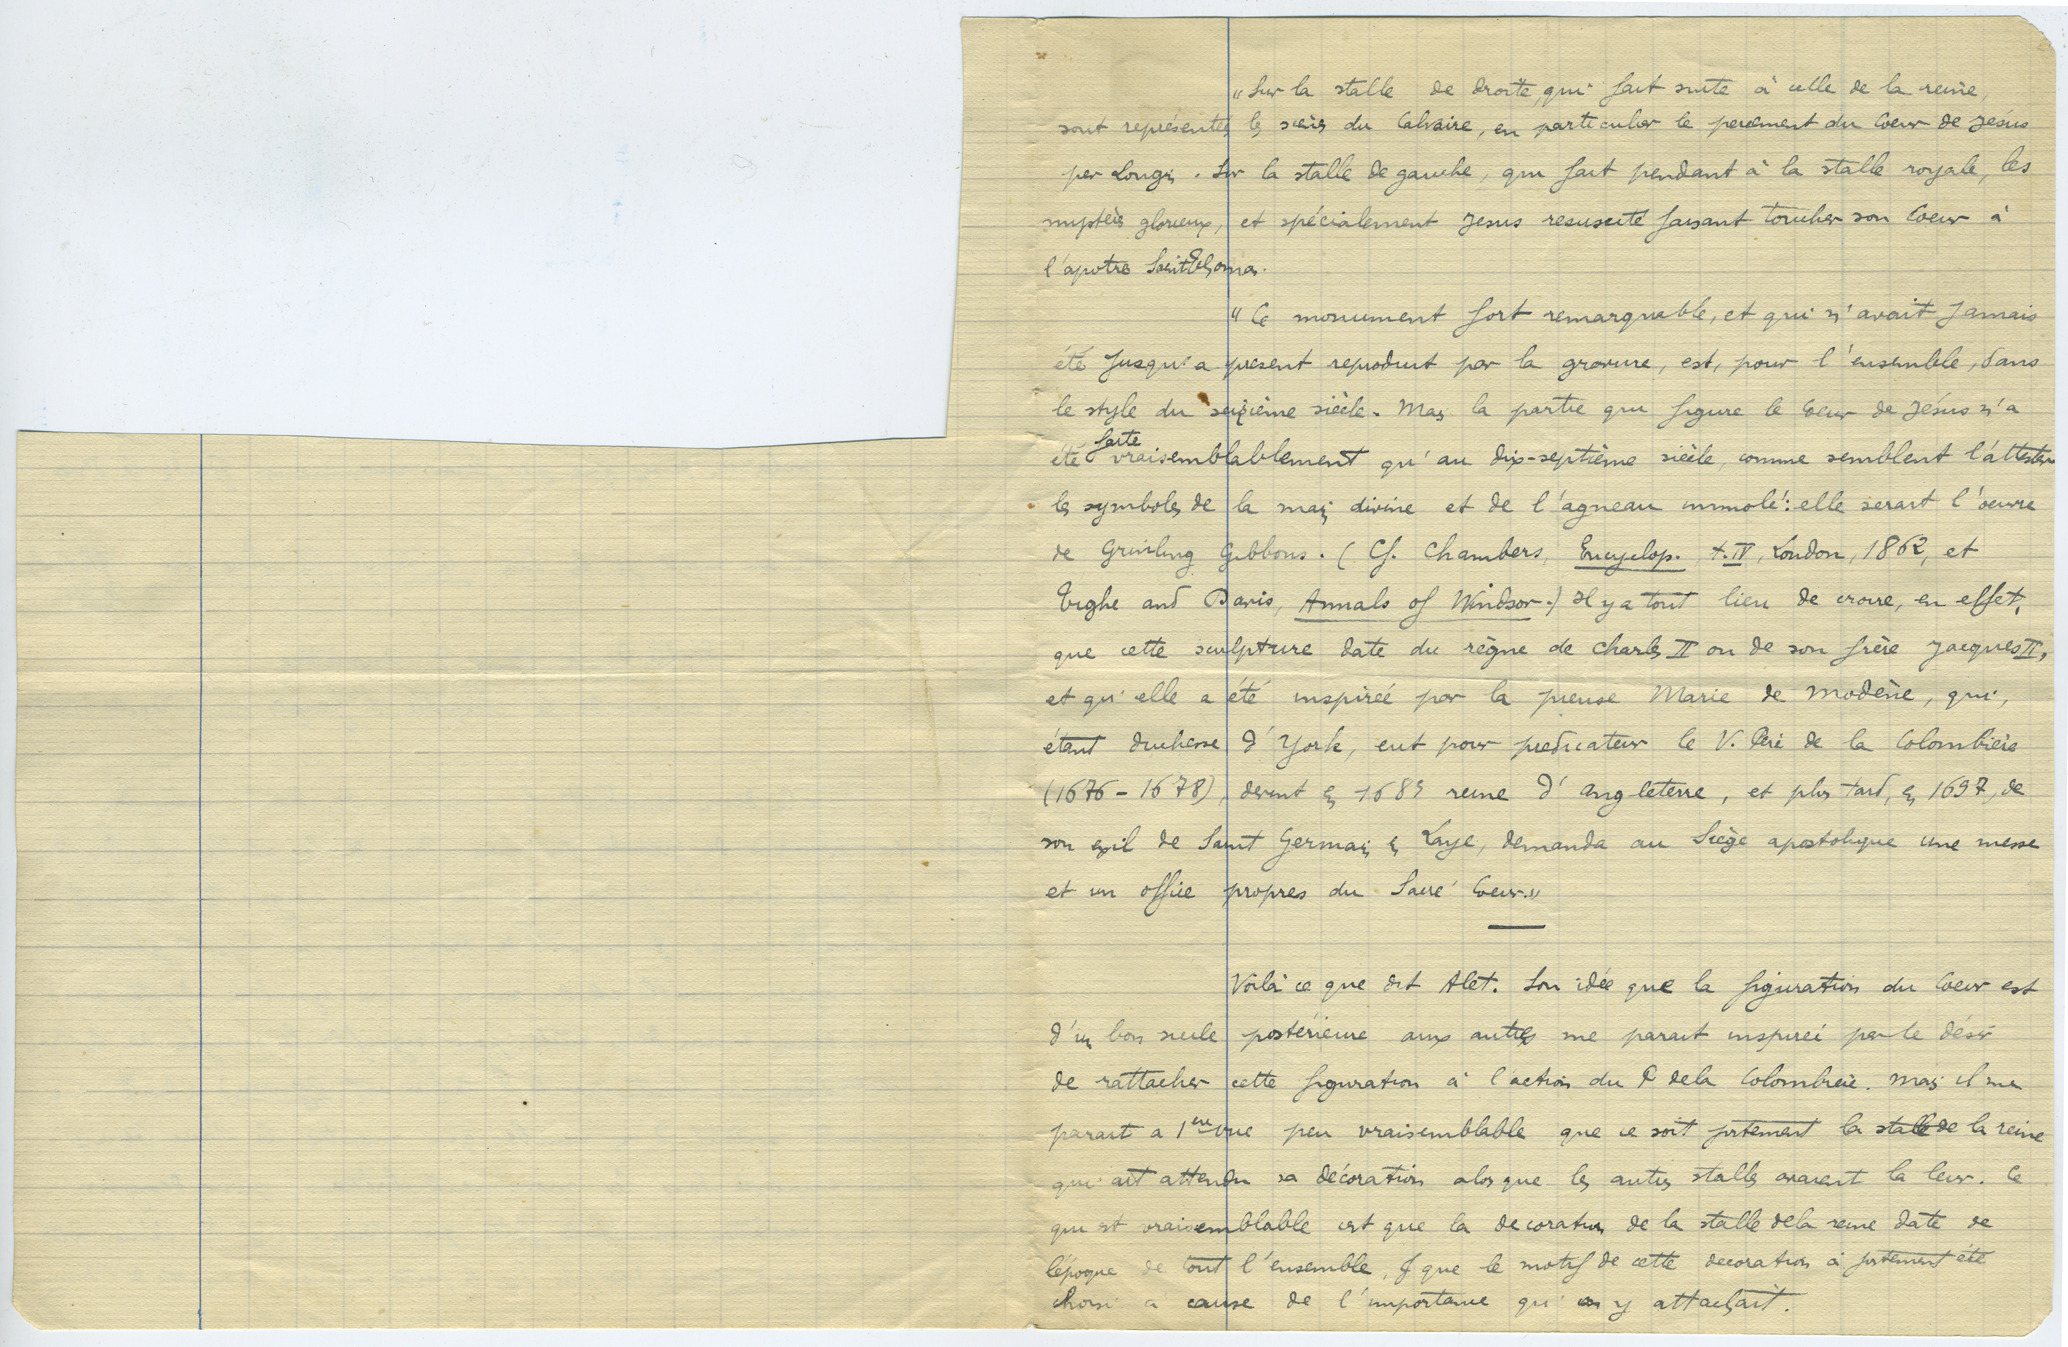 "Sur la stalle de droite, qui fait suite à celle de la reine,
sont représentés les scènes du Calvaire, en particulier le percement du Coeur de Jésus
par Longin. Sur la stalle de gauche, qui fait pendant à la stalle royale, les
mystères glorieux, et spécialement Jesus resuscité faisant toucher son Coeur à
l'apotre Saint Thomas.
"Ce monument fort remarquable, et qui n'avait jamais
été jusqu'a present reproduit par la gravure, est, pour l'ensemble, dans
le style du seizième siècle. Mais la partie qui figure le Coeur de Jésus n'a
été faite vraisemblablement qu'au dix-septième siècle, comme semblent l'attester
les symboles de la main divine et de l'agneau immolé: elle serait l'oeuvre
de Grinling Gibbons. (Cf. Chambers, Encyclop. t. IV, London, 1862, et
Tighe and Davis, Annals of Windsor.) Il y a tout lieu de croire, en effet,
que cette sculpture date du règne de Charles II ou de son frère Jacques II,
et qu'elle a été inspirée par la pieuse Marie de Modène, qui,
étant duchesse d'York, eut pour predicateur le V. Père de la Colombière
(1676-1678), devint en 1685 reine d'Angleterre, et plus tard, en 1697, de
son exil de Saint Germain en Laye, demanda au Siège apostolique une messe
et un office propres du Sacré Coeur."
Voilà ce que dit Alet. Son idée que la figuration du Coeur est
d'un bon siecle postérieure aux autres me parait inspirée par le désir
de rattacher cette figuration à l'action du P. de la Colombière. Mais il me
parait a 1ere vue peu vraisemblable que ce soit justement la stalle de la reine
qui ait attendu sa décoration alors que les autres stalles avaient la leur. Ce
qui est vraisemblable c'est que la decoration de la stalle de la reine date de
l'époque de tout l'ensemble, & que le motif de cette decoration a justement été
choisi a cause de l'importance qu'on y attachait.